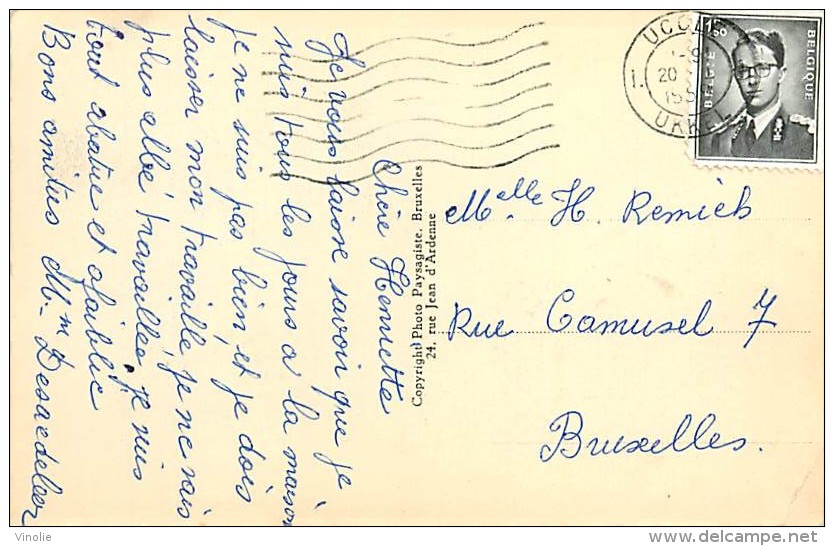 Chère Henriette
Je vous laisse savoir que je
suis tous les jours a la maison
je ne suis pas bien et je dois
laisser mon travaille, je ne sais
plus allé travaillée, je suis
tout abatue et afaiblie
Bons amitiés Mm Desaedeleer
Copyright Photo Paysagiste, Bruxelles
24, rue Jean d'Ardenne
UCCLE
1.
20
UKKEL
1.50
BELGIE
BELGIQUE
Melle H. Remich
Rue Camusel 7
Bruxelles.
Vinolie
http://www.delcampe.net